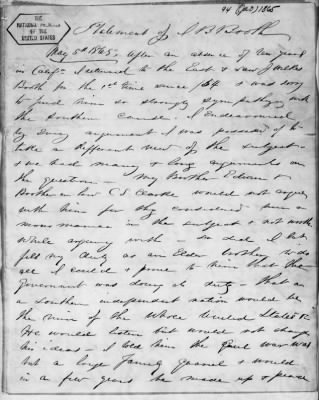 94 (JAO) 1865
THE
NATIONAL ARCHIVES
OF THE
UNITED STATES
Statement of J B Booth
May 5th 1865. After an absence of ten years
in Calif. I returned to the East & saw J Wilkes
Booth for the 1st time since /54 & was sorry
to find him so strongly sympathy with
the Southern Cause. I Endeavoured
by every argument I was possessed of to
take a different view of the subject
& we had many & long arguments on
the question - My brother Edwin &
Brother in law C S Clarke would not argue
with him for they considered him a
mono maniac on the subject & not worth
while arguing with - so did I but
felt my duty as an Elder brother to do
all I could & prove to him that the
Government was doing its duty - that
a Southern independent nation would be
the ruin of the whole United States &c
He would listen but would not change
his ideas - I told him the Civil war was
but a large Family quarrel & would
in a few years be made up & peace